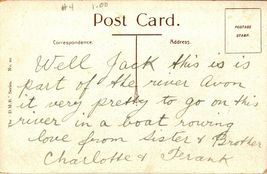 #4 1.00
Post Card.
Correspondence.
Address.
POSTAGE STAMP.
"D.M.R." Series. No. 20
Well Jack this is is
part of the river Avon
it very pretty to go on this
river in a boat rowing
love from Sister & Brother
Charlotte & Frank